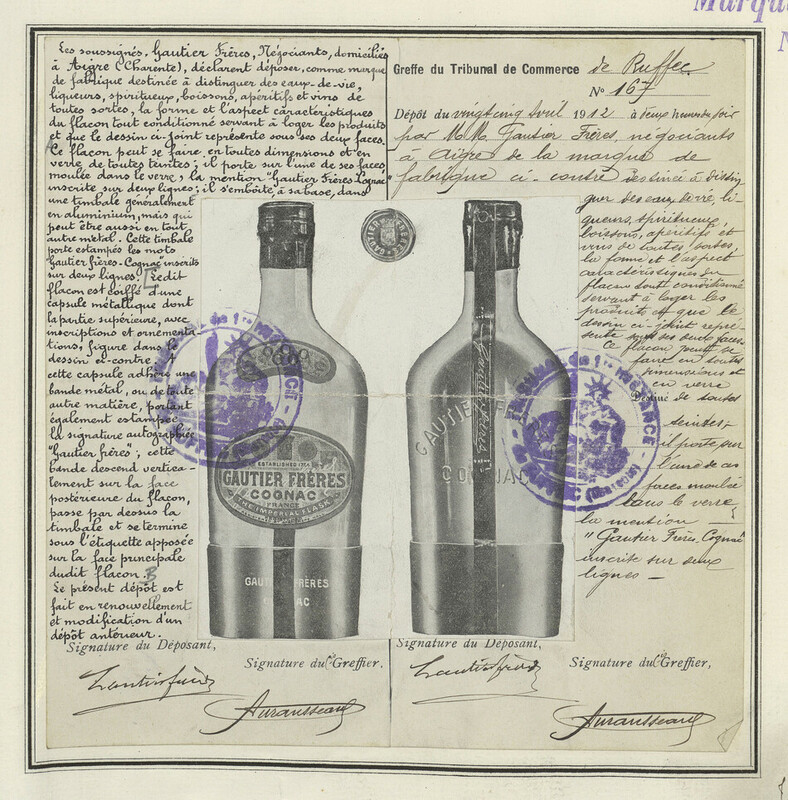 Marqu
N
Les soussignés, Gautier Frères, Négociants, domiciliés
à Aigre (Charente), déclarent déposer, comme marque
de fabrique destinée à distinguer des eaux-de-vie,
liqueurs, spiritueux, boissons, apéritifs et vins de
toutes sortes, la forme et l'aspect caractéristiques
du flacon tout conditionné servant à loger les produits
et que le dessin ci-joint représente sous ses deux faces.
Ce flacon peut se faire en toutes dimensions et en
verre de toutes teintes; il porte sur l'une de ses faces
moulée dans le verre, la mention "Gautier Frères Cognac"
inscrite sur deux lignes; il s'emboîte, à sa base, dans
une timbale généralement
en aluminium, mais qui
peut être aussi en tout
autre métal. Cette timbale
porte estampés les mots
"Gautier frères - Cognac" inscrits
sur deux lignes. Ledit
flacon est coiffé d'une
capsule métallique dont
la partie supérieure, avec
inscriptions et ornementa-
tions, figure dans le
dessin ci-contre. A
cette capsule adhère une
bande métal, ou de toute
autre matière, portant
également estampée
la signature autographiée
"Gautier frères"; cette
bande descend vertica-
lement sur la face
postérieure du flacon,
passe par dessus la
timbale et se termine
sous l'étiquette apposée
sur la face principale
dudit flacon.
Le présent dépôt est
fait en renouvellement
et modification d'un
dépôt antérieur.
Greffe du Tribunal de Commerce de Ruffec
N° 167
Dépôt du vingt cinq Avril 1912 à deux heures du soir
par M.M. Gautier Frères, négociants
à Aigre de la marque de
fabrique ci-contre destinée à distin-
guer des eaux de vie, li-
queurs, spiritueux,
boissons, apéritifs et
vins de toutes sortes,
la forme et l'aspect
caractéristiques du
flacon tout conditionné
servant à loger les
produits et que le
dessin ci-joint repré-
sente sous ses deux faces.
Ce flacon peut se
faire en toutes
dimensions et
en verre
Destiné de toutes
teintes;
il porte sur
l'une de ses
faces moulée
dans le verre
la mention
"Gautier Frères, Cognac"
inscrite sur deux
lignes -
GAUTIER FRÈRES
ESTABLISHED 1755
GAUTIER FRÈRES
COGNAC
FRANCE
THE IMPERIAL FLASK
GAUTIER FRÈRES
COGNAC
Gautier frères
GAUTIER FR
COGNAC
Tribunal de 1re INSTANCE
Tribunal de 1re INSTANCE
(Charente)
Signature du Déposant,
Signature du Greffier,
Gautier frères
Signature du Déposant,
Signature du Greffier,
Gautier frères